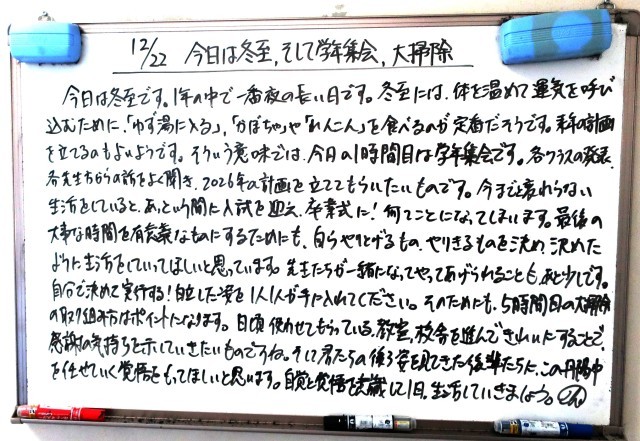 12/22 今日は冬至、そして学年集会、大掃除
今日は冬至です。1年の中で一番夜の長い日です。冬至には、体を温めて運気を呼び
込むために、「ゆず湯に入る」、「かぼちゃ」や「れんこん」を食べるのが定番だそうです。来年の計画
を立てるのもよいようです。そういう意味では、今日の1時間目は学年集会です。各クラスの発表、
各先生方からの話をよく聞き、2026年の計画を立ててもらいたいものです。今までと変わらない
生活をしていると、あっという間に入試を迎え、卒業式に!何てことになってしまいます。最後の
大事な時間を有意義なものにするためにも、自らやりとげるもの、やりきるものを決め、決めた
ように生活をしていってほしいと思っています。先生たちが一緒になってやってあげられることも、あと少しです。
自分で決めて実行する!自立した姿を1人1人が手に入れてください。そのためにも、5時間目の大掃除
の取り組み方はポイントになります。日頃使わせてもらっている、教室、校舎を進んできれいにすることで、
感謝の気持ちを示していきたいものですね。そして君たちの後ろ姿を見てきた後輩たちに、この
を任せていく覚悟をもってほしいと思います。自覚と覚悟を意識して1日、生活していきましょう。